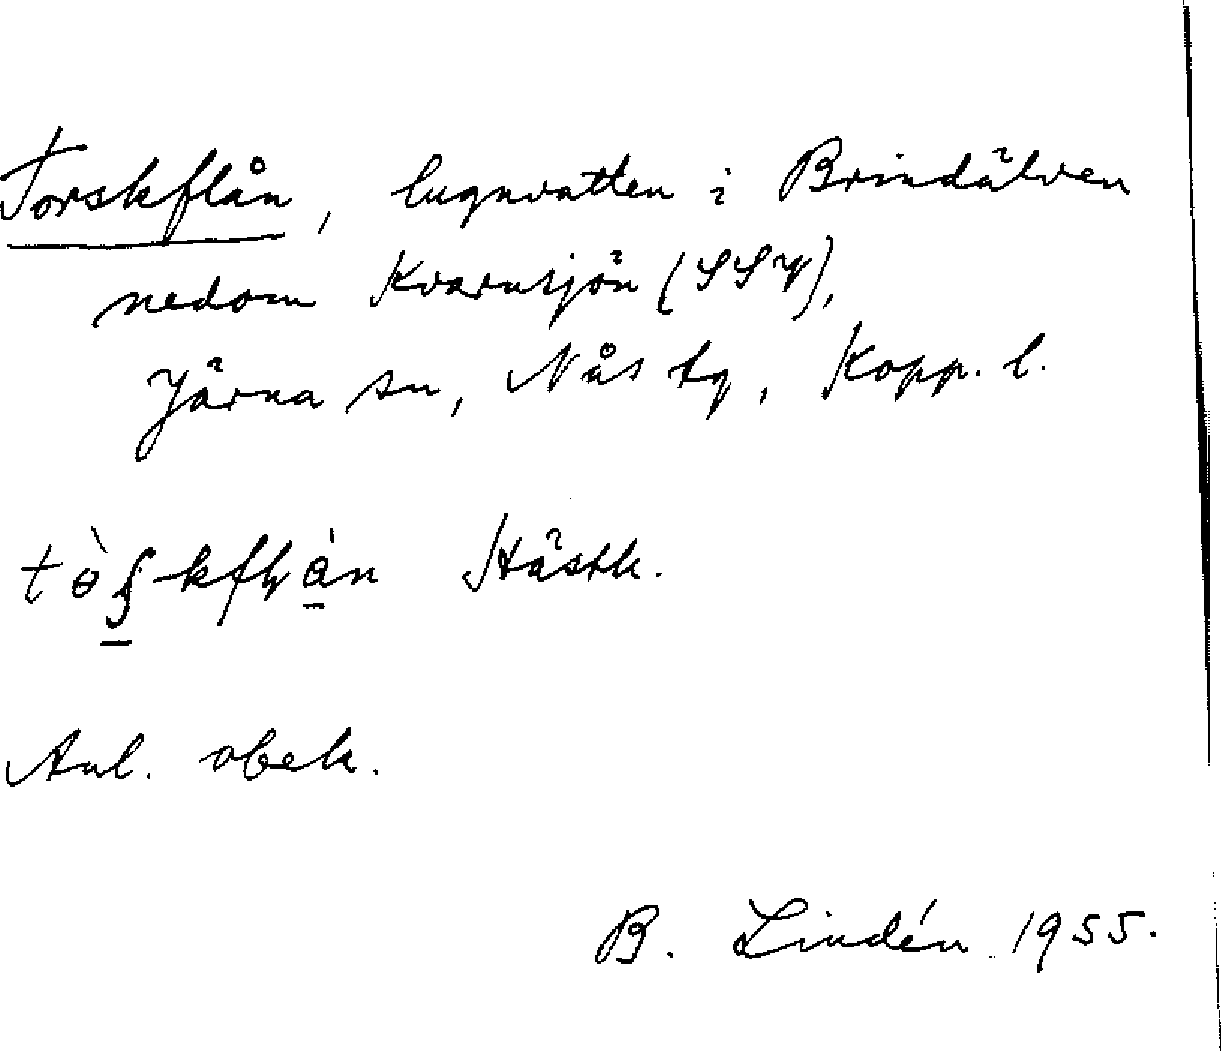 Torskflån, lugnvatten i Brindälven
nedom Kvarnsjön (SSV),
Järna sn, Nås tg, Kopp. l.
Hästh.
Anl. obek.
B. Lindén 1955.